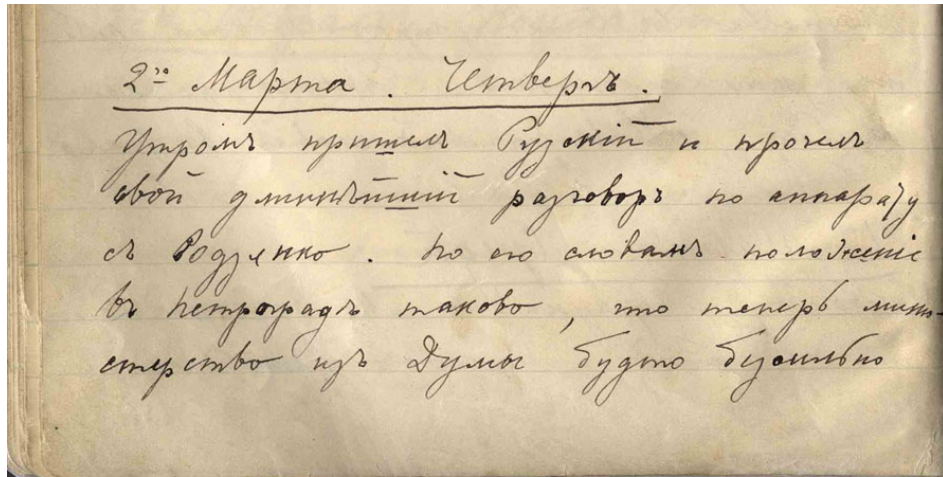 2го Марта. Четвергъ.
Утромъ пришелъ Рузскій и прочелъ
свой длиннѣйшій разговоръ по аппарату
съ Родзянко. По его словамъ положеніе
въ Петроградѣ таково, что теперь мини-
стерство изъ Думы будто безсильно